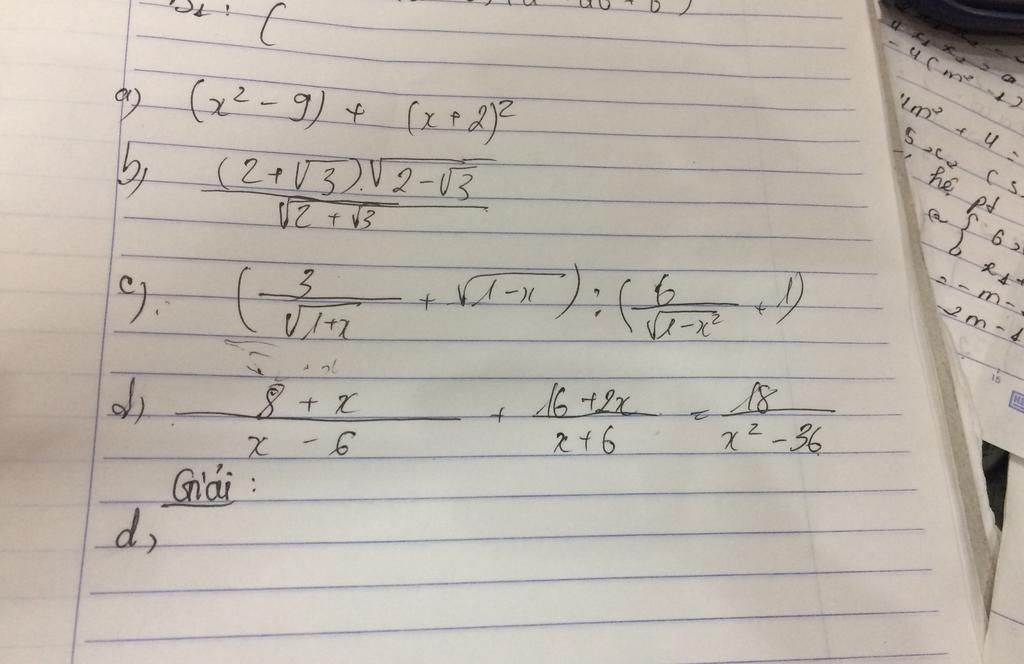 a) (x² - 9) + (x + 2)²
b) (2 + √3).√(2 - √3) / √(2 + √3)
c) : (3 / √(1+x) + √(1-x)) : (6 / √(1-x²) + 1)
d) (8 + x) / (x - 6) + (16 + 2x) / (x + 6) = 18 / (x² - 36)
Giải :
d,
4m² + 4 =
hệ pt
2m - 1